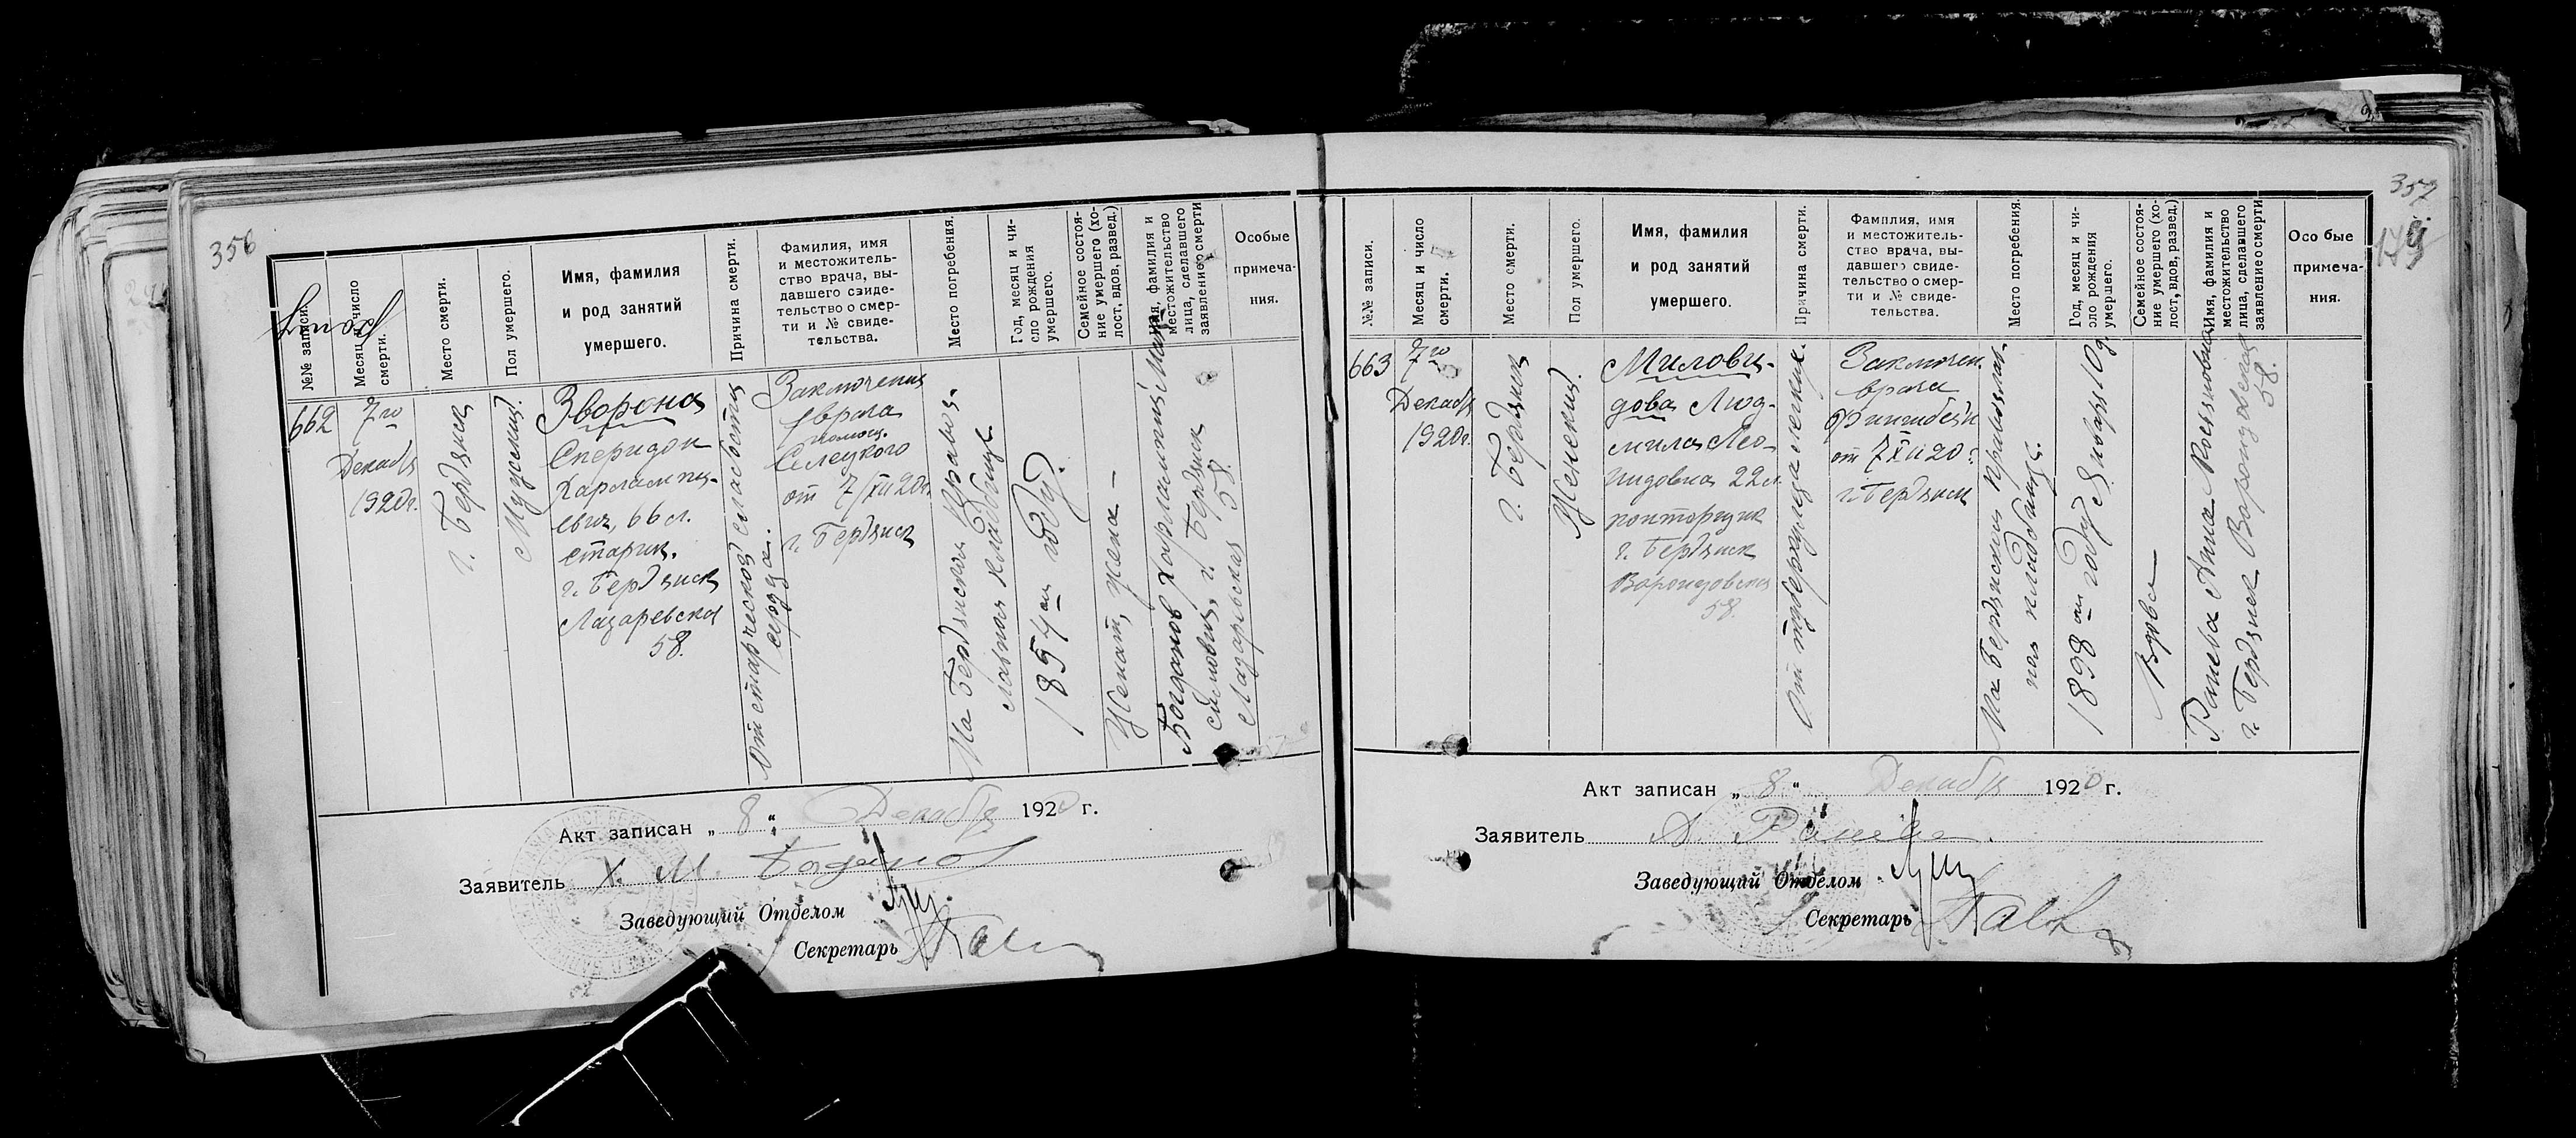 356
№№ записи.
Месяц и число
смерти.
Место смерти.
Пол умершего.
Имя, фамилия
и род занятий
умершего.
Причина смерти.
Фамилия, имя
и местожитель-
ство врача, вы-
давшего свиде-
тельство о смер-
ти и № свиде-
тельства.
Место погребения.
Год, месяц и чи-
сло рождения
умершего.
Семейное состоя-
ние умершего (хо-
лост, вдов, развед.)
Имя, фамилия и
местожительство
лица, сделавшего
заявление о смерти
Особые
примеча-
ния.
662
7го
Декабря
1920г.
г. Бердянск
Мужской.
Зворона
Спиридон
Харлампи-
евич, 66 л.
старик.
г. Бердянск
Лазаревская
58.
От старческой слабости
сердца.
Заключения
врача
Селецкого
от 7/XII 20г.
г. Бердянск
На Бердянском Правос-
лавном кладбище
1854 ом году.
Женат, жена —
Богданов Харлампий
г. Бердянск
Лазаревская 58.
Акт записан „ 8 “ Декабря 1920 г.
Заявитель Х. М. Богданов
Заведующий Отделом
Секретарь
357
№№ записи.
Месяц и число
смерти.
Место смерти.
Пол умершего.
Имя, фамилия
и род занятий
умершего.
Причина смерти.
Фамилия, имя
и местожитель-
ство врача, вы-
давшего свиде-
тельство о смер-
ти и № свиде-
тельства.
Место погребения.
Год, месяц и чи-
сло рождения
умершего.
Семейное состоя-
ние умершего (хо-
лост, вдов, развед.)
Имя, фамилия и
местожительство
лица, сделавшего
заявление о смерти
Осо бые
примеча-
ния.
663
7го
Декабря
1920г.
г. Бердянск
Женский.
Милови-
дова Люд-
мила Лео-
нидовна 22 л.
конторщик
г. Бердянск
Воронцовская
58.
От туберкулеза легких.
Заключен.
врача
от 7 XII 20 г.
г. Бердянск
На Бердянском православ-
ном кладбище.
1898 ом году Января 10 д.
Вдова —
Ранева Анна
г. Бердянск Воронцовская
58.
Акт записан „ 8 “ Декабря 1920 г.
Заявитель А. Ранева
Заведующий Отделом
Секретарь